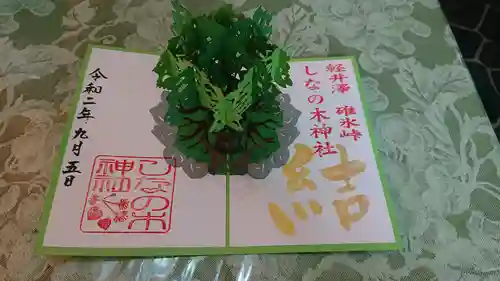 軽井澤 碓氷峠
しなの木神社
結
令和二年九月五日
しなの木
神社